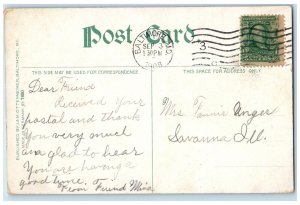 Post Card
BALTIMORE, MD.
SEP 3
1 30 PM
1908
3
THIS SIDE MAY BE USED FOR CORRESPONDENCE
THIS SPACE FOR ADDRESS ONLY
Dear Friend
Received Your
postal and thank
You very much
am glad to hear
You are having a
good time.
From Friend Mina
Mrs. Fannie Unger
Savanna Ill.
PUBLISHED BY I. & M. OTTENHEIMER, BALTIMORE, MD.